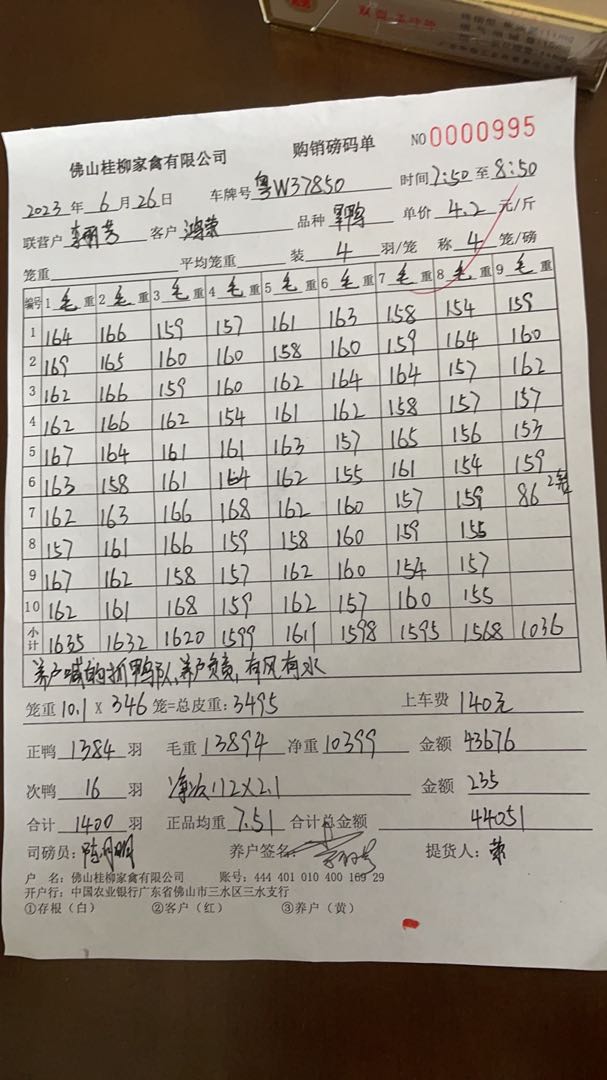 佛山桂柳家禽有限公司 购销磅码单 NO 0000995
2023 年 6 月 26 日 车牌号 粤W37850 时间 7:50 至 8:50
联营户 客户 鸿荣 品种 单价 4.2 元/斤
笼重 平均笼重 装 4 羽/笼 称 4 笼/磅
编号 1 毛 重 2 毛 重 3 毛 重 4 毛 重 5 毛 重 6 毛 重 7 毛 重 8 毛 重 9 毛 重
1 164 166 159 157 161 163 158 154 159
2 169 165 160 160 158 160 159 164 160
3 162 166 159 160 162 164 164 157 162
4 162 166 162 154 161 162 158 157 157
5 167 164 161 161 163 157 165 156 153
6 163 158 161 164 162 155 161 154 159
7 162 163 166 168 162 160 157 159 86 2笼
8 157 161 166 159 158 160 159 155
9 167 162 158 157 162 160 154 157
10 162 161 168 159 162 157 160 155
小计 1635 1632 1620 1599 1611 1598 1595 1568 1036
养户喊的抓鸭队,养户负责,有风有水
笼重 10.1 X 346 笼=总皮重: 3495 上车费 140元
正鸭 1384 羽 毛重 13894 净重 10399 金额 43676
次鸭 16 羽 净次112X2.1 金额 235
合计 1400 羽 正品均重 7.51 合计总金额 44051
司磅员: 养户签名: 提货人: 荣
户 名: 佛山桂柳家禽有限公司 账号: 444 401 010 400 169 29
开户行: 中国农业银行广东省佛山市三水区三水支行
①存根（白） ②客户（红） ③养户（黄）